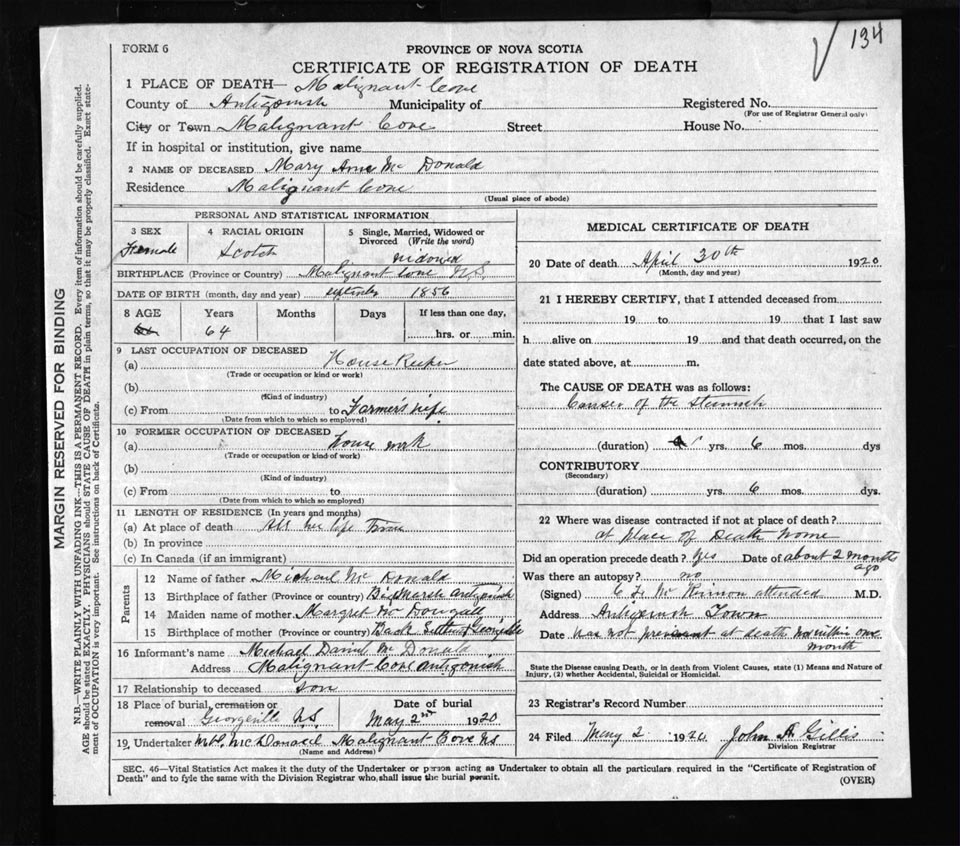 134
FORM 6
PROVINCE OF NOVA SCOTIA
CERTIFICATE OF REGISTRATION OF DEATH
1 PLACE OF DEATH— Malignant Cove
County of Antigonish Municipality of Registered No.
(For use of Registrar General only)
City or Town Malignant Cove Street House No.
If in hospital or institution, give name
2 NAME OF DECEASED Mary Ann Mc Donald
Residence Malignant Cove
(Usual place of abode)
PERSONAL AND STATISTICAL INFORMATION
3 SEX 4 RACIAL ORIGIN 5 Single, Married, Widowed or
Divorced (Write the word)
Female Scotch widowed
BIRTHPLACE (Province or Country) Malignant Cove N.S.
DATE OF BIRTH (month, day and year) September 1856
8 AGE Years Months Days If less than one day,
64 hrs. or min.
9 LAST OCCUPATION OF DECEASED
(a) House Keeper
(Trade or occupation or kind or work)
(b)
(Kind of industry)
(c) From to Farmer's wife
(Date from which to which so employed)
10 FORMER OCCUPATION OF DECEASED
(a) house work
(Trade or occupation or kind of work)
(b)
(Kind of industry)
(c) From to
(Date from which to which so employed)
11 LENGTH OF RESIDENCE (In years and months)
(a) At place of death All her life time
(b) In province
(c) In Canada (if an immigrant)
Parents
12 Name of father Michael Mc Donald
13 Birthplace of father (Province or country) Big Marsh Antigonish
14 Maiden name of mother Margret Mc Dougall
15 Birthplace of mother (Province or country) Back Georgeville
16 Informant's name Michael Daniel Mc Donald
Address Malignant Cove Antigonish
17 Relationship to deceased son
18 Place of burial, cremation or Date of burial
removal Georgeville N.S. May 2nd 1920
19 Undertaker McDonald Malignant Cove NS
(Name and Address)
MEDICAL CERTIFICATE OF DEATH
20 Date of death April 30th 1920
(Month, day and year)
21 I HEREBY CERTIFY, that I attended deceased from
19 to 19 that I last saw
h alive on 19 and that death occurred, on the
date stated above, at m.
The CAUSE OF DEATH was as follows:
Canser of the stumich
(duration) yrs. 6 mos. dys
CONTRIBUTORY
(Secondary)
(duration) yrs. 6 mos. dys.
22 Where was disease contracted if not at place of death?
at place of Death home
Did an operation precede death? Yes Date of about 2 months
ago
Was there an autopsy? no
(Signed) Mc Kinnon attended M.D.
Address Antigonish Town
Date was not present at death within one
month
State the Disease causing Death, or in death from Violent Causes, state (1) Means and Nature of
Injury, (2) whether Accidental, Suicidal or Homicidal.
23 Registrar's Record Number
24 Filed May 2 1920 John A Gillis
Division Registrar
SEC. 46—Vital Statistics Act makes it the duty of the Undertaker or person acting as Undertaker to obtain all the particulars required in the "Certificate of Registration of
Death" and to fyle the same with the Division Registrar who shall issue the burial permit.
(OVER)
MARGIN RESERVED FOR BINDING
N.B.—WRITE PLAINLY WITH UNFADING INK—THIS IS A PERMANENT RECORD. Every item of information should be carefully supplied.
AGE should be stated EXACTLY. PHYSICIANS should STATE CAUSE OF DEATH in plain terms, so that it may be properly classified. Exact state-
ment of OCCUPATION is very important. See instructions on back of Certificate.